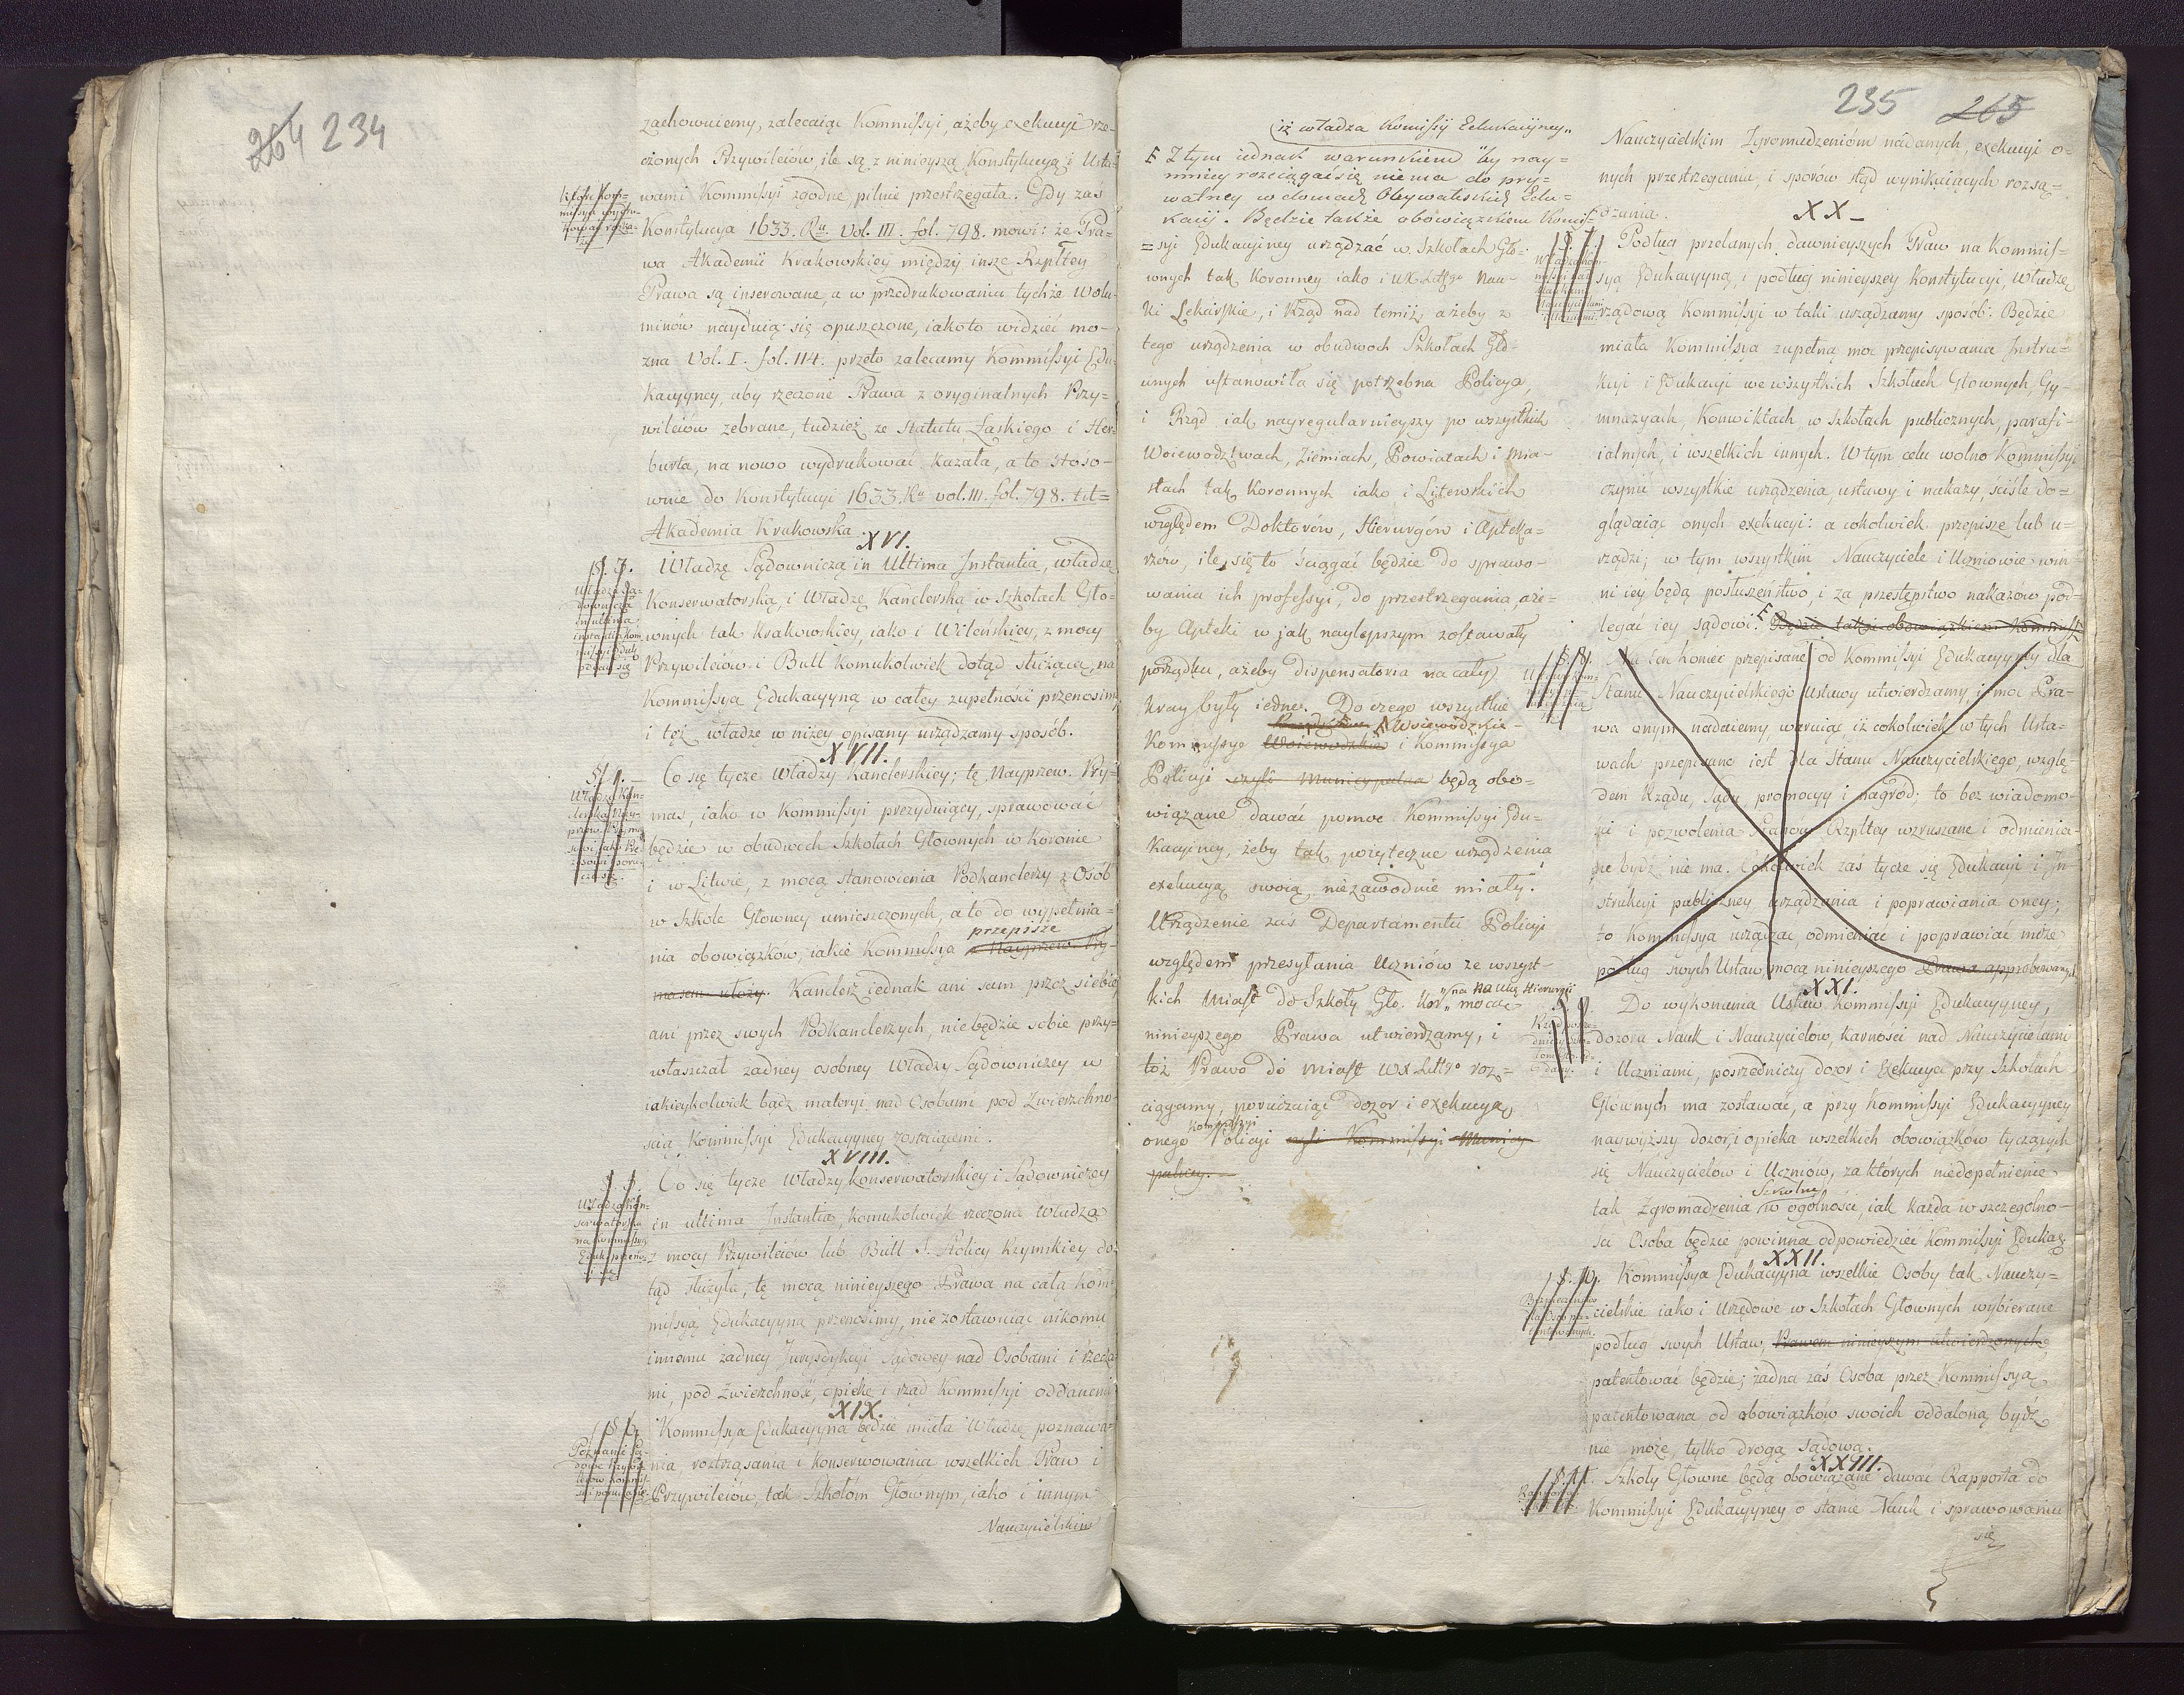 264 234
zachowuiemy, zalecaiąc Kommissyi, ażeby exekucyi rze-
czonych Przywileiów, ile są z ninieyszą Konstytucyą i Usta-
wami Kommissyi zgodne, pilnie przestrzegała. Gdy zaś
Konstytucya 1633. Ru. Vol. III. fol. 798. mowi: że Pra-
wa Akademii Krakowskiey między insze Rzpltey
Prawa są inserowane, a w przedrukowaniu tychże Wolu-
minów nayduią się opuszczone, iakoto widzieć mo-
żna Vol. I. fol. 114. przeto zalecamy Kommissyi Edu-
kacyyney, aby rzeczone Prawa z oryginalnych Przy-
wileiów zebrane, tudzież ze Statutu Łaskiego i Her-
burta, na nowo wydrukować kazała, a to stoso-
wnie do Konstytucyi 1633. Ru vol. III. fol. 798. tit=
Akademia Krakowska.
XVI.
§. 3.
Władza Są-
downicza
in ultima
instantia Kom-
missyi Eduk.
oddaie się
Władzę Sądowniczą in Ultima Instantia, władzę
Konserwatorską, i Władzę Kanclerską w Szkołach Gło-
wnych tak Krakowskiey iako i Wileńskiey, z mocy
Przywileiów i Bull komukolwiek dotąd służącą, na
Kommissyą Edukacyyną w całey zupełności przenosimy
i też władzę w niżey opisany urządzamy sposób.
XVII.
Co się tycze Władzy Kanclerskiey; tę Nayprzew. Pry-
mas, iako w Kommissyi prezyduiący, sprawować
będzie w obudwoch Szkołach Głownych w Koronie
i w Litwie, z mocą stanowienia Podkanclerzy z Osób
w Szkole Głowney umieszczonych, a to do wypełnia-
przepisze
nia obowiązków, iakie Kommissya z Nayprzew. Pry-
masem ułoży. Kanclerz iednak ani sam przez siebie
ani przez swych Podkanclerzych, nie będzie sobie przy-
właszczał żadney osobney Władzy Sądowniczey w
iakieykolwiek bądź materyi nad Osobami pod Zwierzchno-
scią Kommissyi Edukacyyney zostaiącemi.
XVIII.
Władza Kon-
serwatorska
na Kommissyą
Eduk. przeno-
si się
Co się tycze Władzy konserwatorskiey i Sądowniczey
in ultima Instantia, komukolwiek rzeczona Władza
z mocy Przywileiów lub Bull S. Stolicy Rzymskiey do-
tąd służyła, tę mocą ninieyszego Prawa na całą Kom-
missyą Edukacyyną przenosimy, nie zostawuiąc nikomu
innemu żadney Jurysdykcyi Sądowey nad Osobami i rzecza-
mi, pod zwierzchność, opiekę i rząd Kommissyi oddanemi
XIX.
Kommissya Edukacyyna będzie miała Władzę poznawa-
nia roztrząsania i konserwowania wszelkich Praw i
Przywileiów, tak Szkołom Głownym, iako i innym
Nauczycielskim
235 265
iż władza Komissyi Edukacyiney
F Z tym iednak warunkiem by nay=
mniey rozciągać się nie ma do pry=
watney w domach Obywatelskich Edu=
kacyi. Będzie także obowiązkiem Komis=
=syi Edukacyiney urządzać w Szkołach Gło-
wnych tak Koronney iako i WX. Littgo Nau-
ki Lekarskie, i Rząd nad temiż, ażeby z
tego urządzenia w obudwoch Szkołach Gło-
wnych ustanowiła się potrzebna Policya,
i Rząd iak nayregularnieyszy po wszystkich
Woiewodztwach, Ziemiach, Powiatach i Mia-
stach tak Koronnych iako i Litewskich
względem Doktorów, Hirurgów i Apteka-
rzów, ile się to ściągać będzie do sprawo-
wania ich professyi, do przestrzegania, aże-
by Apteki w jak naylepszym zostawały
porządku, ażeby dispensatoria na cały
kray były iedne. Do czego wszystkie
Woiewodzkie
Kommissye Woiewodzkie i Kommissya
Policyi czyli Municypalna będą obo-
wiązane dawać pomoc Kommissyi Edu-
kacyiney, żeby tak pożyteczne urządzenia
exekucyą swoią niezawodnie miały.
Urządzenie zaś Departamentu Policyi
względem przesyłania Uczniów ze wszyst-
na Naukę Hirurgii
kich Miast do Szkoły Gło. Kor. mocą
ninieyszego Prawa utwierdzamy, i
toż Prawo do Miast WX. Littgo roz-
ciągamy, poruczaiąc dozor i exekucyą
Kommissyi
onego Policyi czyli Kommissyi Municy-
palney.
Nauczycielskim Zgromadzeniom nadanych, exekucyi o-
nych przestrzegania, i sporów stąd wynikaiących rozsą=
dzania.
XX
Podług przelanych dawnieyszych Praw na Kommis-
syą Edukacyyną, i podług ninieyszey Konstytucyi, Władzę
rządową Kommissyi w taki urządzamy sposób: Będzie
miała Kommissya zupełną moc przepisywania Instru-
kcyi i Edukacyi we wszystkich Szkołach Głownych, Gy-
mnazyach, Konwiktach, w Szkołach publicznych, parafi-
ialnych, i wszelkich innych. W tym celu wolno Kommissyi
czynić wszystkie urządzenia, ustawy i nakazy, ściśle do-
glądaiąc onych exekucyi: a cokolwiek przepisze lub u-
rządzi; w tym wszystkim Nauczyciele i Uczniowie win-
ni iey będą posłuszeństwo, i za przestępstwo nakazów pod-
legać iey sądowi. F Będzie także obowiązkiem Kommissyi
Na ten koniec przepisane od Kommissyi Edukacyyney dla
Stanu Nauczycielskiego Ustawy utwierdzamy, i moc Pra-
wa onym nadaiemy waruiąc iż cokolwiek w tych Usta-
wach przepisane iest dla Stanu Nauczycielskiego, wzglę-
dem Rządu, sądu, promocyy i nagród; to bez wiadomo-
ści i pozwolenia Stanów Rzpltey wzruszane i odmienia-
ne bydź nie ma. Cokolwiek zaś tycze się Edukacyi i In-
strukcyi publiczney urządzania i poprawiania oney;
to Kommissya urządzać, odmieniać i poprawiać może,
podług swych Ustaw mocą ninieyszego Prawa approbowanych
XXI.
Do wykonania Ustaw Kommissyi Edukacyyney,
dozoru Nauk i Nauczycielow, karności nad Nauczycielami
i Uczniami, pośredniczy dozor i Exekucya przy Szkołach
Głownych ma zostawać, a przy Kommissyi Edukacyyney
naywyższy dozor, i opieka wszelkich obowiązków tyczących
się Nauczycielow i Uczniów, za których niedopełnienie
Szkolne
tak Zgromadzenia w ogolności, iak każda w szczegolno-
ści Osoba będzie powinna odpowiedzieć Kommissyi Edukacy.
XXII.
Kommissya Edukacyyna wszelkie Osoby tak Nauczy=
cielskie iako i Urzędowe w Szkołach Głownych wybierane
podług swych Ustaw, Prawem ninieyszym utwierdzonych,
patentować będzie; żadna zaś Osoba przez Kommissyą
patentowana od obowiązków swoich oddaloną bydź
nie może, tylko drogą sądową.
XXIII.
Szkoły Głowne będą obowiązane dawać Rapporta do
Kommissyi Edukacyyney o stanie Nauk i sprawowaniu
się